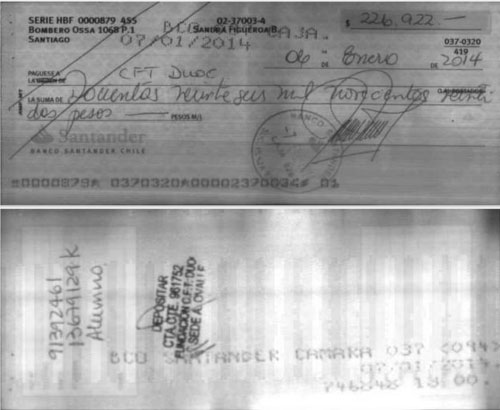 SERIE HBF 0000879 455
BOMBERO OSSA 1068 P.1
SANTIAGO
02-37003-4
SANDRA FIGUEROA B.
BCO
CAJA
07/01/2014
$ 226.922 —
037-0320
419
06 DE Enero DE 2014
PAGUESE A
CFT Duoc
LA SUMA DE Docientos veinte seis mil novecientos veinti
dos pesos — PESOS M/L
Santander
BANCO SANTANDER CHILE
0000879 0370320 00002370034 01
91392461
13679129-K
Alumno
DEPOSITAR
CTA.CTE. 961752
FUNDACION C.F.T. DUOC
SEDE A. OVALLE
BCO SANTANDER CAMARA 037 <094>
07/01/2014